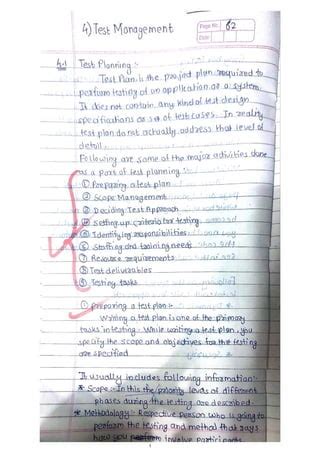 4) Test Management
Page No. 62
Date
4.1 Test Planning :-
Test Plan is the project plan required to
perform testing of an application or a system.
It does not contain any kind of test design
specifications or set of test cases. In reality
test plan do not actually address that level of
detail.
Following are some of the major activities done
as a part of test planning :-
① Preparing a test plan
② Scope Management
③ Deciding Test Approach
④ Setting up criteria for testing
⑤ Identifying responsibilities
⑥ Staffing and training needs
⑦ Resource requirements
⑧ Test deliverables
⑨ Testing tasks
① Preparing a test plan :-
Writing a test plan is one of the primary
tasks in testing. While writing a test plan, you
specify the scope and objectives for the testing
are specified
It usually includes following information :-
* Scope :- In this the priority, levels of different
phases during the testing are described.
* Methodology :- Respective person who is going to
perform the testing and method that says
how you perform involve participants